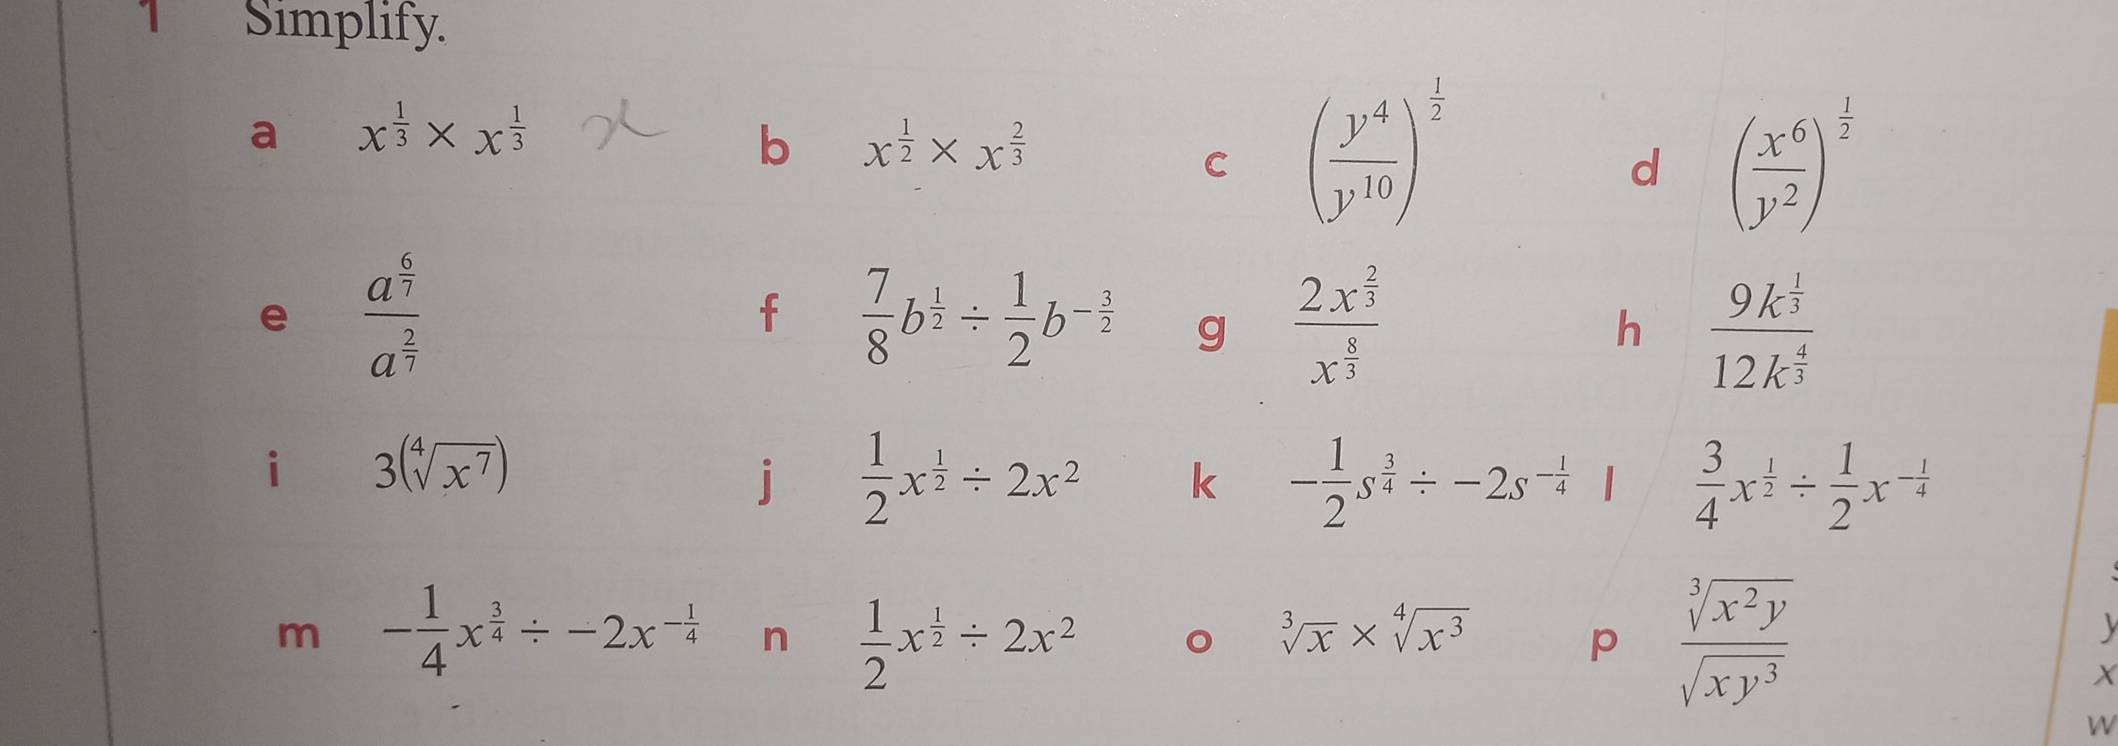 1 Simplify.
a $x^{\frac{1}{3}} \times x^{\frac{1}{3}}$ x b $x^{\frac{1}{2}} \times x^{\frac{2}{3}}$ c $\left(\frac{y^4}{y^{10}}\right)^{\frac{1}{2}}$ d $\left(\frac{x^6}{y^2}\right)^{\frac{1}{2}}$
e $\frac{a^{\frac{6}{7}}}{a^{\frac{2}{7}}}$ f $\frac{7}{8}b^{\frac{1}{2}} \div \frac{1}{2}b^{-\frac{3}{2}}$ g $\frac{2x^{\frac{2}{3}}}{x^{\frac{8}{3}}}$ h $\frac{9k^{\frac{1}{3}}}{12k^{\frac{4}{3}}}$
i $3(\sqrt[4]{x^7})$ j $\frac{1}{2}x^{\frac{1}{2}} \div 2x^2$ k $-\frac{1}{2}s^{\frac{3}{4}} \div -2s^{-\frac{1}{4}}$ l $\frac{3}{4}x^{\frac{1}{2}} \div \frac{1}{2}x^{-\frac{1}{4}}$
m $-\frac{1}{4}x^{\frac{3}{4}} \div -2x^{-\frac{1}{4}}$ n $\frac{1}{2}x^{\frac{1}{2}} \div 2x^2$ o $\sqrt[3]{x} \times \sqrt[4]{x^3}$ p $\frac{\sqrt[3]{x^2y}}{\sqrt{xy^3}}$